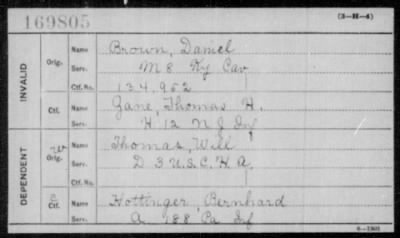 169805
(3—H—4)
INVALID
Orig. Name Brown, Daniel
Serv. M 8 Ky Cav
Ctf. No. 134,952
Ctf. Name Gane, Thomas H.
Serv. H 12 N J Inf
DEPENDENT
Orig. Name Thomas, Will
Serv. D 3 U.S.C.H.A.
Ctf. No.
Ctf. Name Hottinger, Bernhard
Serv. A 188 Pa Inf